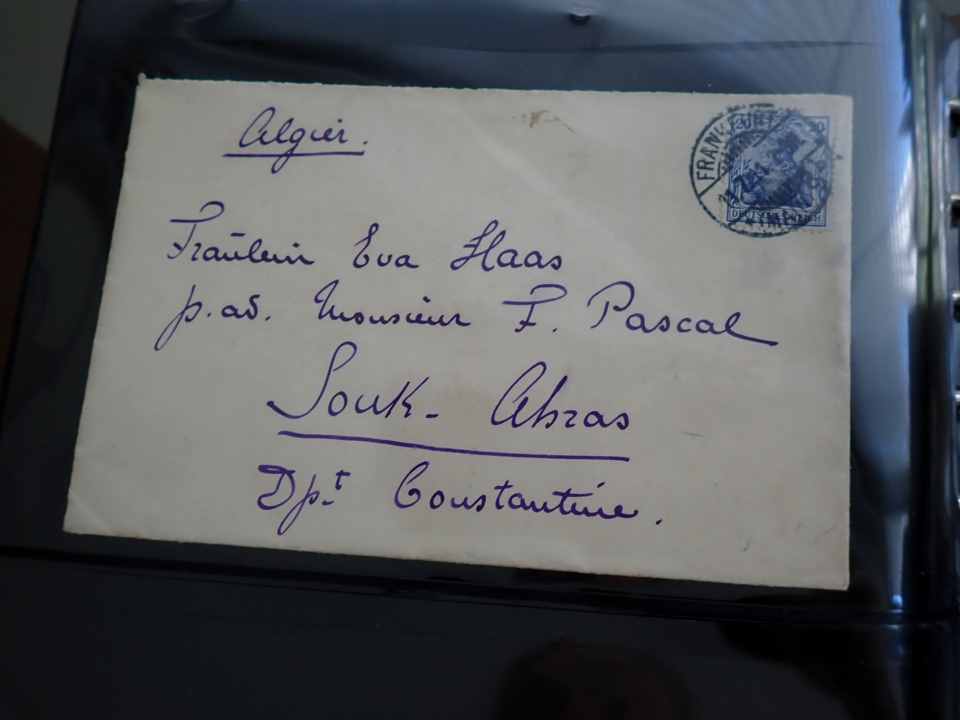 Algier.
FRANKFURT
DEUTSCHES REICH
Fräulein Eva Haas
p. ad. Monsieur F. Pascal
Souk-Ahras
Dpt Constantine.